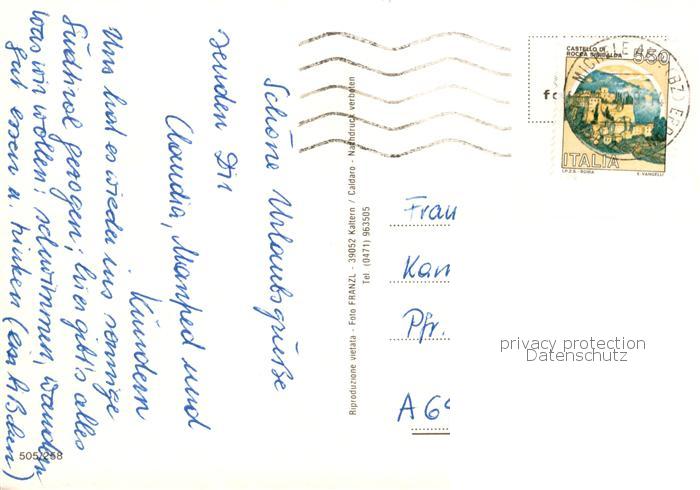 Schöne Urlaubsgrüße
senden Dir
Claudia, Manfred und
Kindern
Uns hat es wieder ins sonnige
Südtirol gezogen; hier gibt's alles
was wir wollen: schwimmen, wandern
gut essen u. trinken (ein bißchen)
505/258
Riproduzione vietata - Foto FRANZL - 39052 Kaltern / Caldaro - Nachdruck verboten
Tel. (0471) 963505
CASTELLO DI
ROCCA SINIBALDA
550
ITALIA
I.P.Z.S. - ROMA
E. VANGELLI
Frau
Kan
Pfr.
A 69
privacy protection
Datenschutz